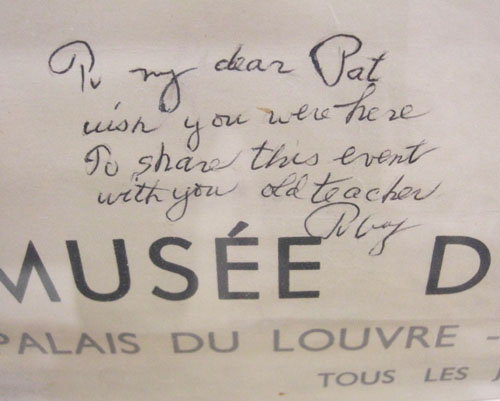 To my dear Pat
wish you were here
To share this event
with you old teacher
MUSÉE D
PALAIS DU LOUVRE -
TOUS LES